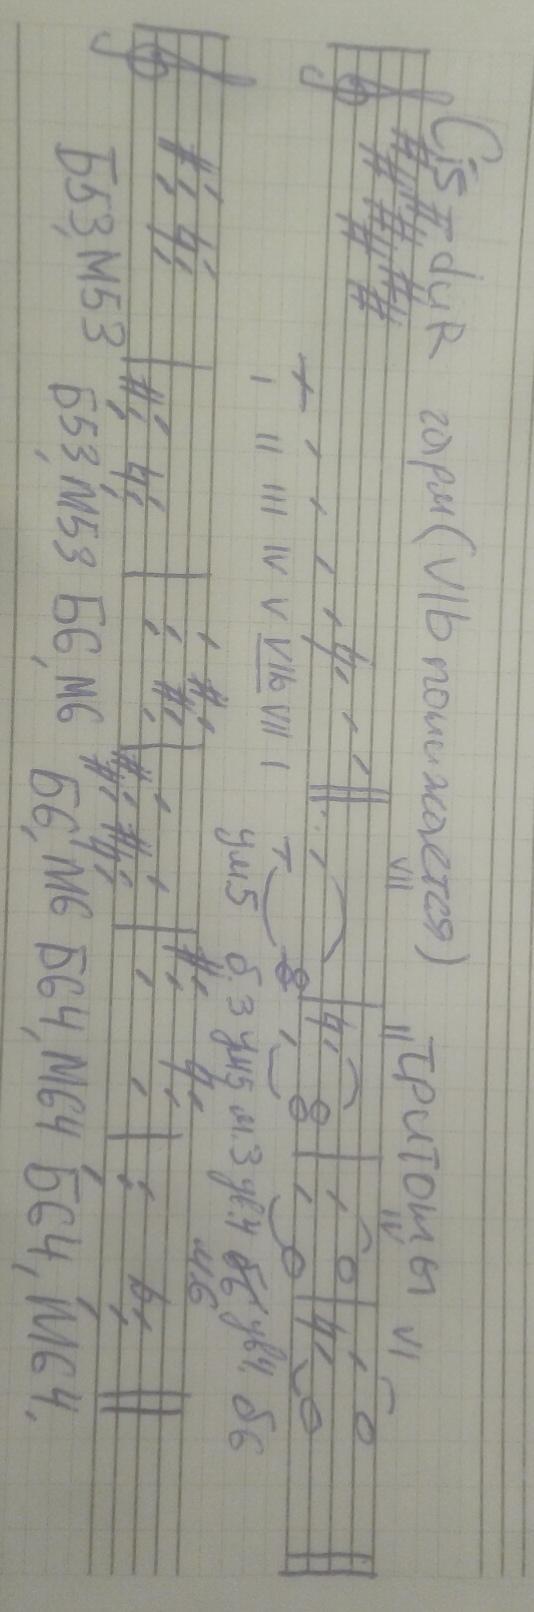 Cis-dur гарм (VIb понижается) Тритоны
VII II IV VI
I II III IV V VIb VII I
ум.5 б.3 ум5 м.3 ув.4 м6 ув4 б6
Б53, М53 Б53, М53 Б6, М6 Б6, М6 Б64, М64 Б64, М64,